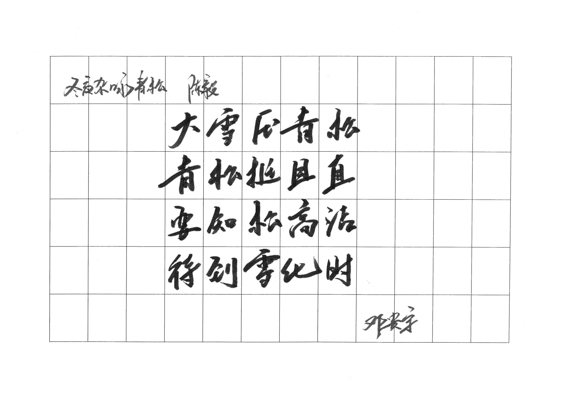 冬夜杂咏青松 陈毅
大雪压青松
青松挺且直
要知松高洁
待到雪化时